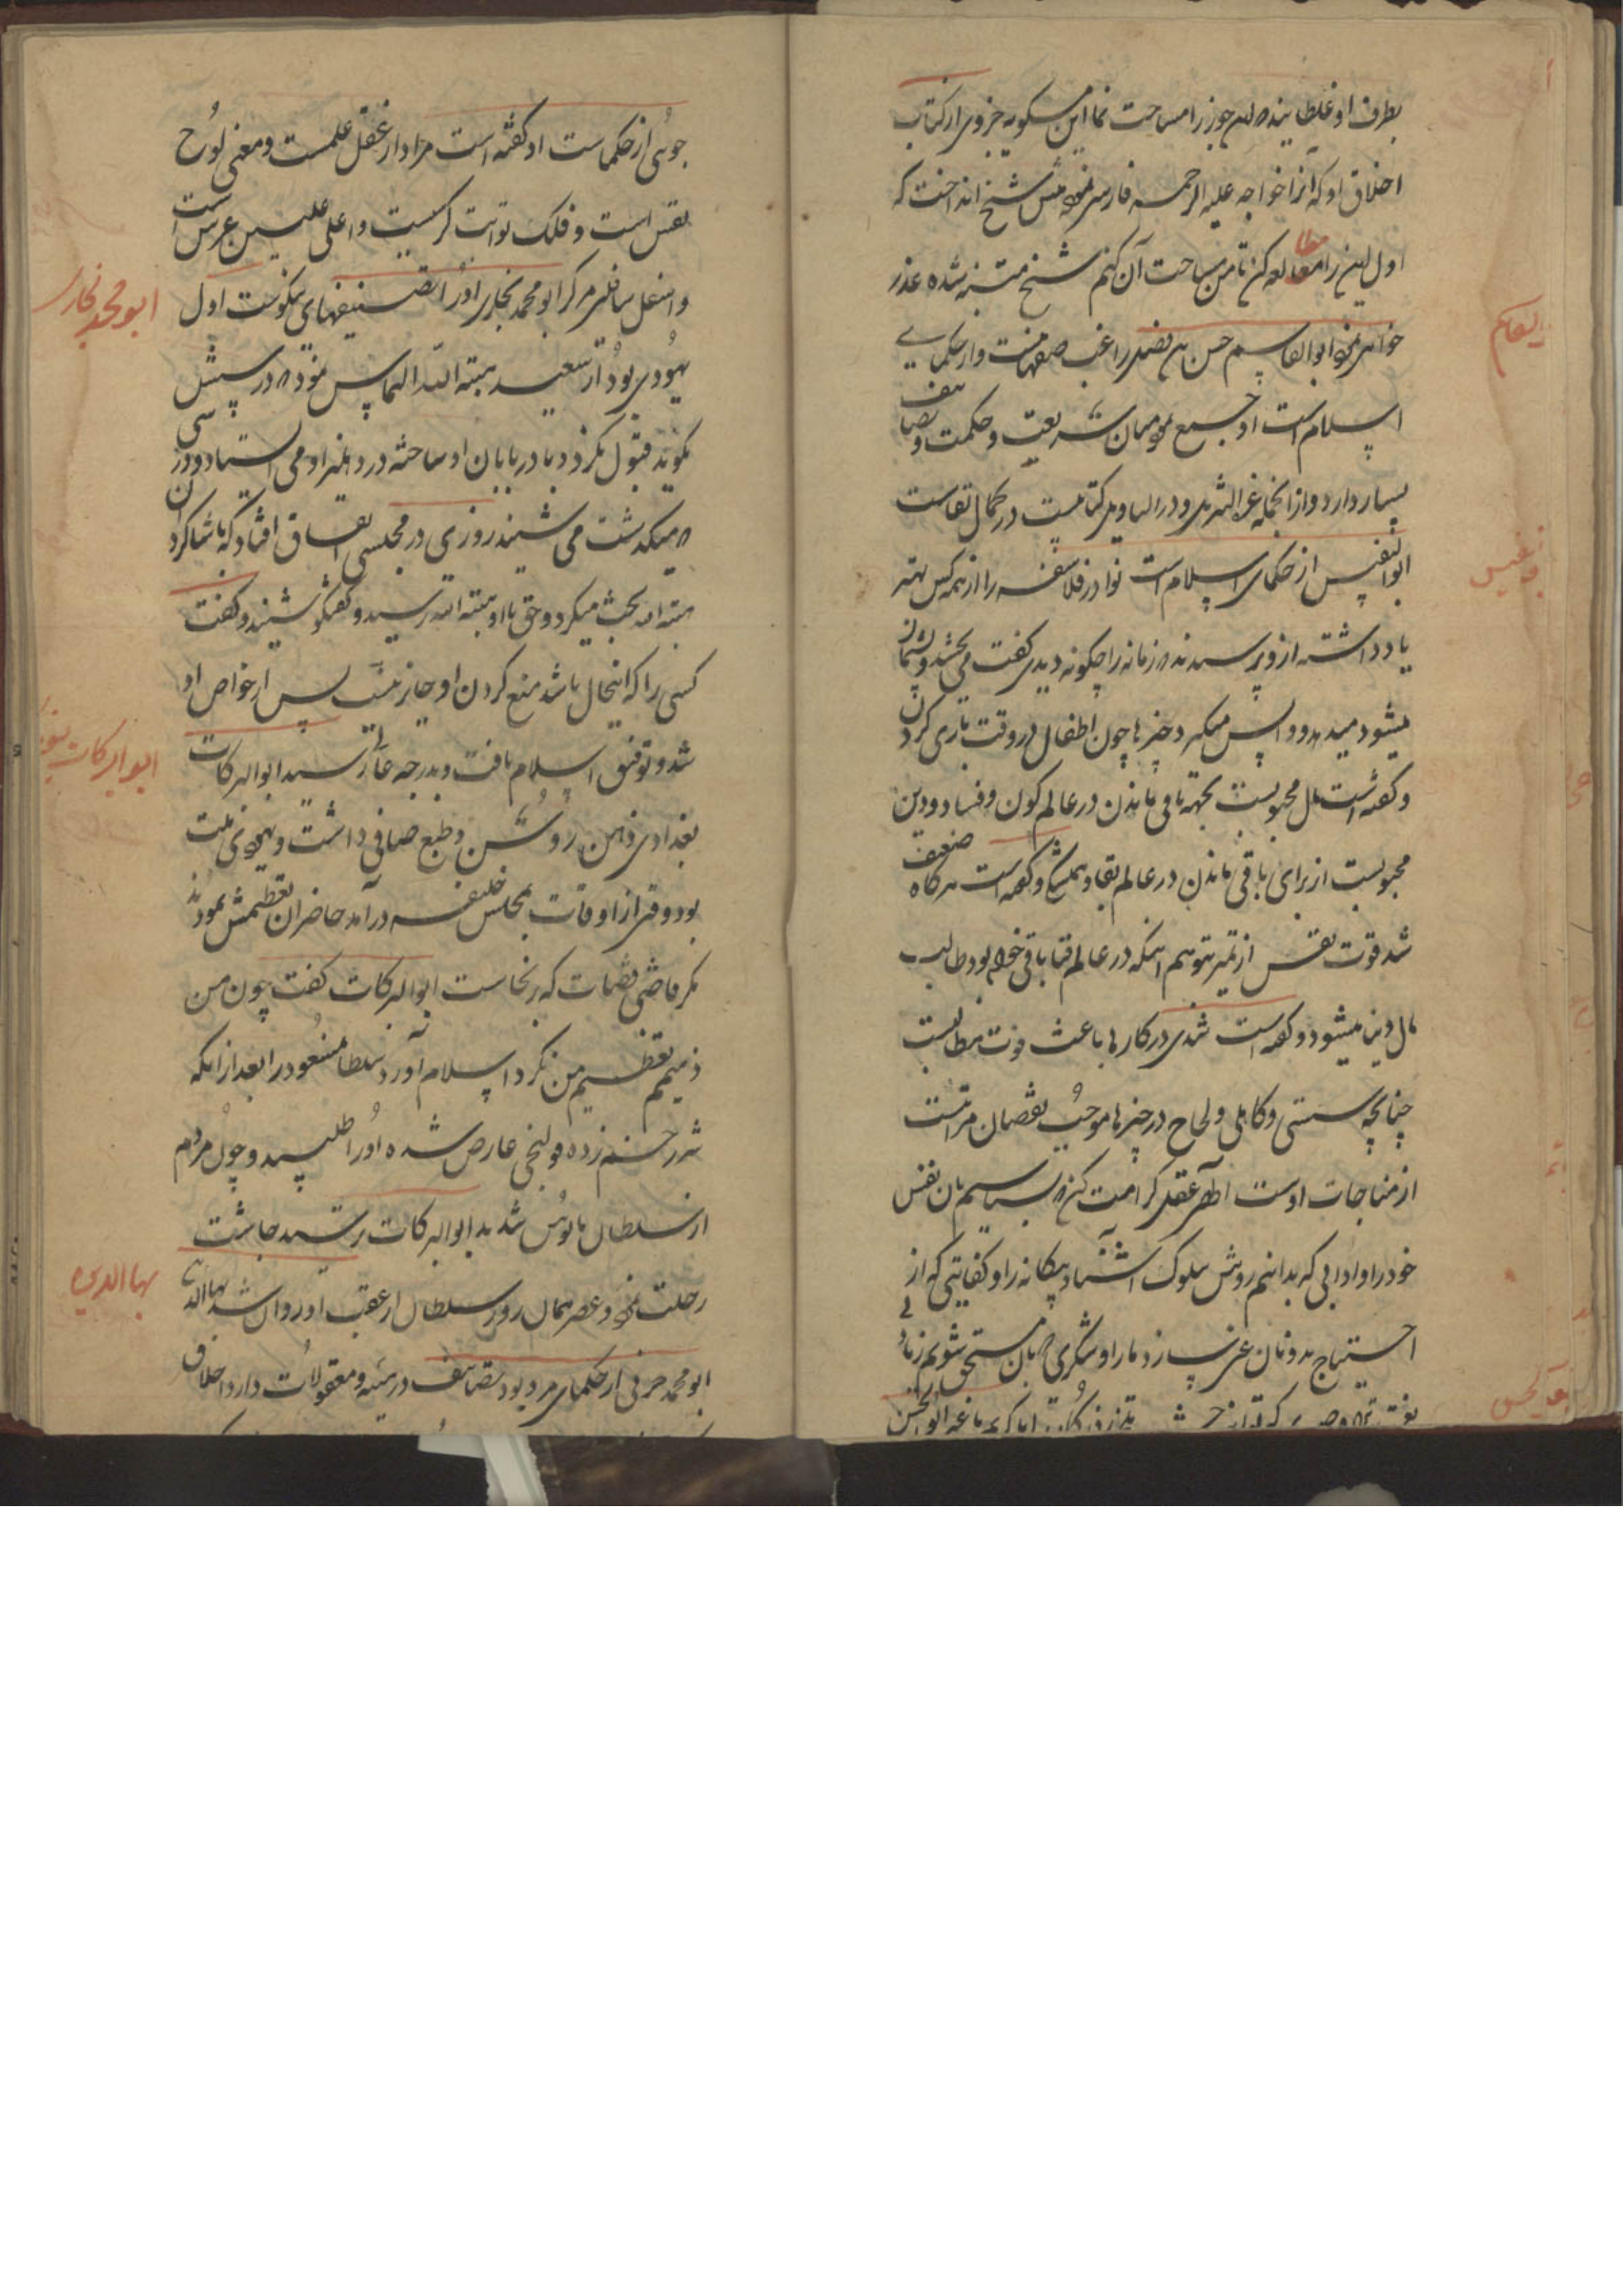 بطرف او غلطانید که این جوز را مساحت نما ابن مسکویه جزوی از کتاب
اخلاق او که آنرا خواجه علیه الرحمه فارسی نموده پیش شیخ انداخت که
اول این را مطالعه کن تا من مساحت آن کنم شیخ متنبه شده عذر
خواهی نمود ابوالقاسم حسن بن فضل راغب صفهانیست و از حکمای
اسلام است او جمع نموده میان شریعت و حکمت و تصانیف
بسیار دارد و از انجمله غرة التنزیل و درة التاویل کتابیست در کمال نفاست
ابوالنفیس از حکمای اسلام است نوادر فلاسفه را از همه کس بهتر
یاد داشته از و پرسیدند که زمانه را چگونه دیدی گفت می بخشد و پشیمان
میشود میدهد و واپس میگیرد چیزها چون اطفال در وقت بازی کردن
و گفته است مال محبوبست بجهة باقی ماندن در عالم کون و فساد و دین
محبوبست از برای باقی ماندن در عالم بقا و همیشگی و گفته است هرگاه ضعیف
شد قوت نفس از تمیز متوهم اینکه در عالم فنا باقی خواهد بود طالب
مال دنیا میشود و گفته است تندی در کارها باعث فوت مطالبست
چنانچه سستی و کاهلی و لجاج در چیزها موجب نقصان مراتبست
از مناجات اوست عقلی کرامت کن که بشناسیم بان نفس
خود را و ادابی که بدانیم روش سلوک آشنا و بیگانه را و کفایتی که از
احتیاج بدونان غنی سازد ما را و شکری که بان مستحق شویم زیاد
ابوالحسن
یقاسم
بونفیس
بوالحسن
جوئی از حکماست او گفته است مراد از عقل علمست و معنی لوح
نفس است و فلک ثوابت کرسیست و اعلی علیین عرش است
و اسفل سافلین مرکز ابو محمد بخاری او را تصنیفهای نیکوست اول
یهودی بود از سعید هبة الله التماس نمود که درسیش
بگوید قبول نکرد و دربانان او ساخته در دهلیز او می ایستاد و درسی
که میگذشت می شنید روزی در مجلسی اتفاق افتاد که با شاگردان
هبة الله بحث میکرد و حق با او هبة الله رسید و گفتگو شنید و گفت
کسی را که اینحال باشد منع کردن او جایز نیست پس از خواص او
شد و توفیق اسلام یافت و بدرجه عالی رسید ابوالبرکات
بغدادی ذهن روشن و طبع صافی داشت و یهودی ملت
بود وقتی از اوقات بمجلس خلیفه درآمد حاضران تعظیمش نمودند
مگر قاضی قضات که برنخاست ابوالبرکات گفت چون من
ذمیم تعظیم من نکرد اسلام آورد سلطان مسعود را بعد از انکه
شیر زخم زده قولنجی عارض شده او را طلبید و چون مردم
از سلطان مایوس شدند ابوالبرکات رسید چاشت
رحلت نمود و عصر همان روز سلطان از عقب او روان شد بهاالدین
ابو محمد خرقی از حکمای مرو بود تصانیف در هیئه و معقولات دارد اخلاق
ابو محمد بخاری
ابوالبرکات
بهاالدین